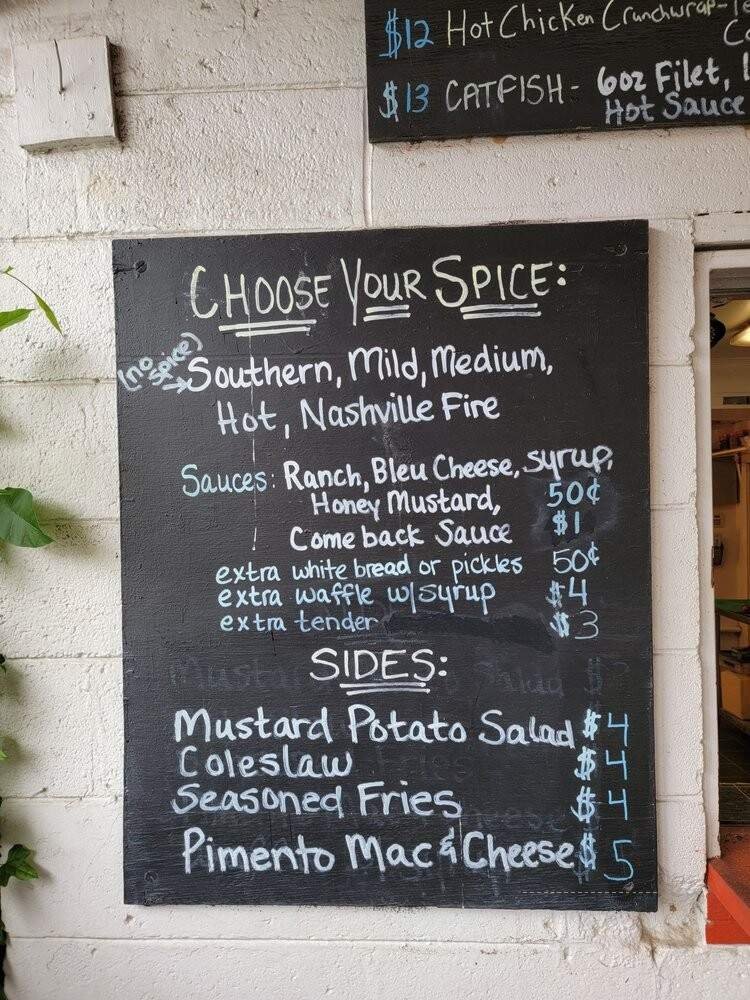 $12 Hot Chicken Crunchwrap-
$13 CATFISH- 6oz Filet,
Hot Sauce
CHOOSE YOUR SPICE:
(no spice)
Southern, Mild, Medium,
Hot, Nashville Fire
Sauces: Ranch, Bleu Cheese, syrup,
Honey Mustard, 50¢
Comeback Sauce $1
extra white bread or pickles 50¢
extra waffle w/syrup $4
extra tender $3
SIDES:
Mustard Potato Salad $4
Coleslaw $4
Seasoned Fries $4
Pimento Mac & Cheese $5